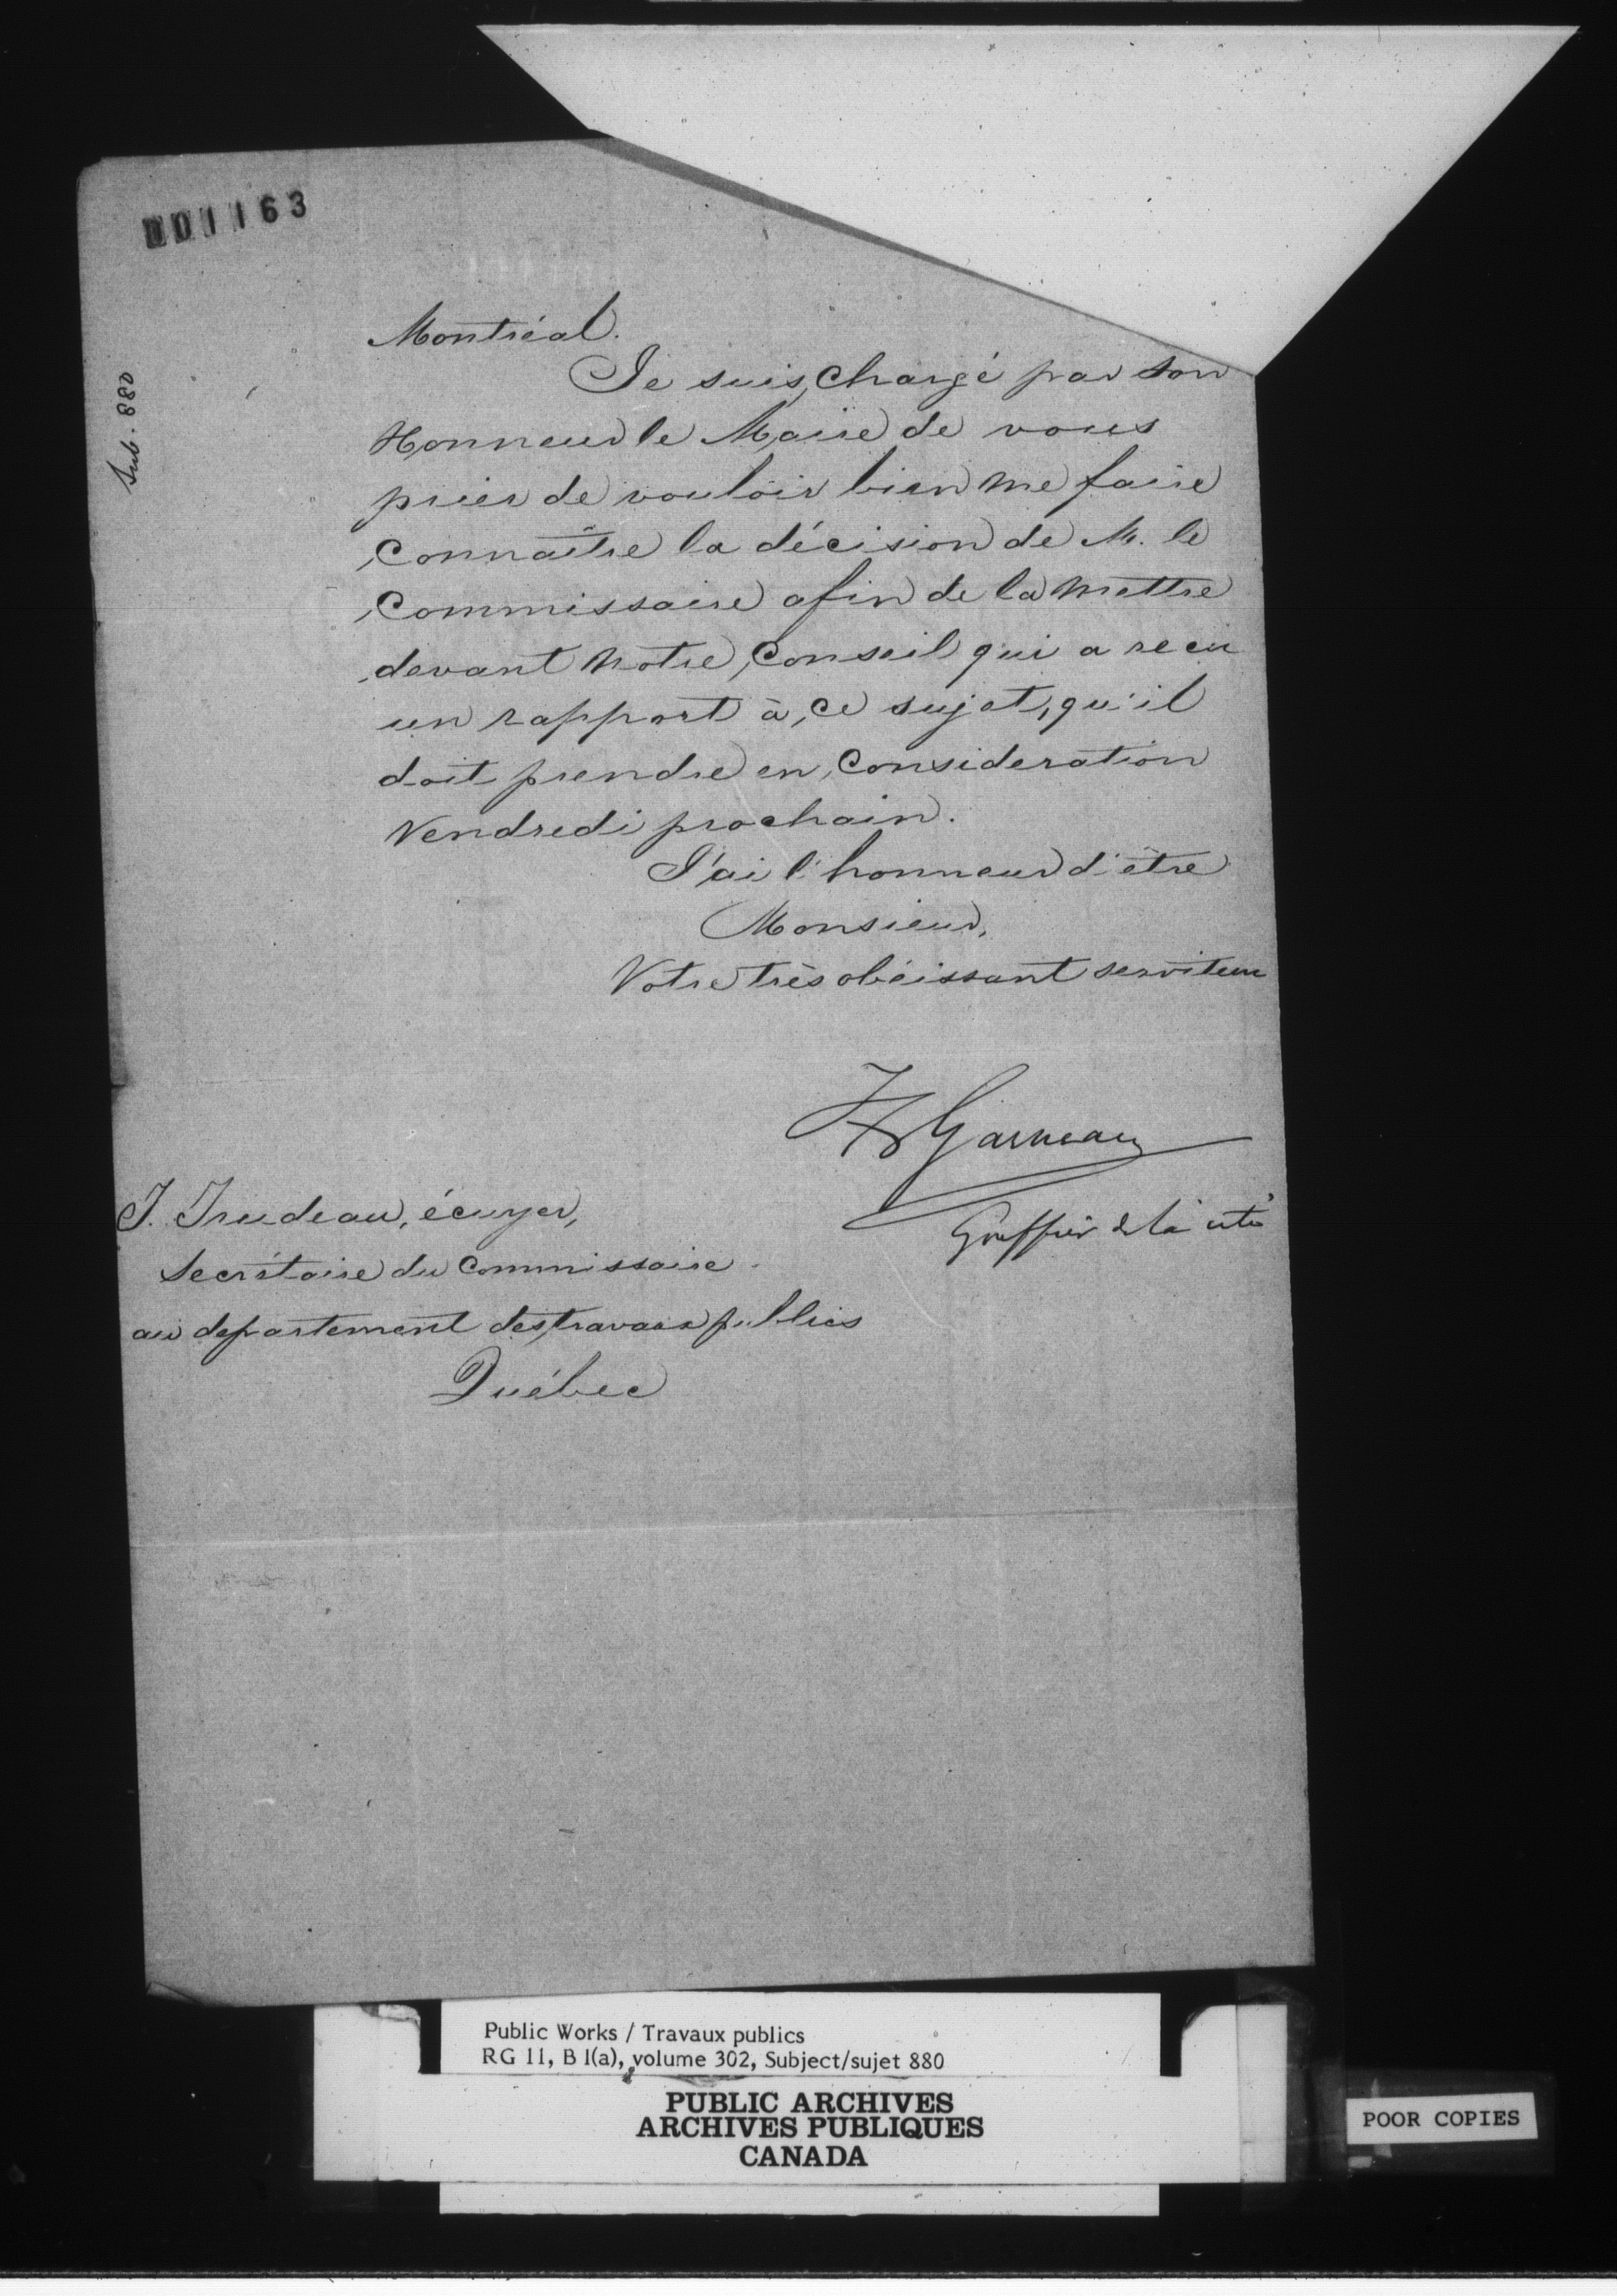 001163
Sub. 880
Montréal.
Je suis chargé par Son
Honneur le Maire de vous
prier de vouloir bien me faire
connaître la décision de M. le
Commissaire afin de la mettre
devant notre Conseil qui a recu
un rapport à ce sujet, qu'il
doit prendre en consideration
Vendredi prochain.
J'ai l'honneur d'être
Monsieur,
Votre très obéissant serviteur
FX Garneau
Greffier de la cité
T. Trudeau, écuyer,
Secrétaire du Commissaire
au departement des travaux publics
Québec
Public Works / Travaux publics
RG 11, B 1(a), volume 302, Subject/sujet 880
PUBLIC ARCHIVES
ARCHIVES PUBLIQUES
CANADA
POOR COPIES